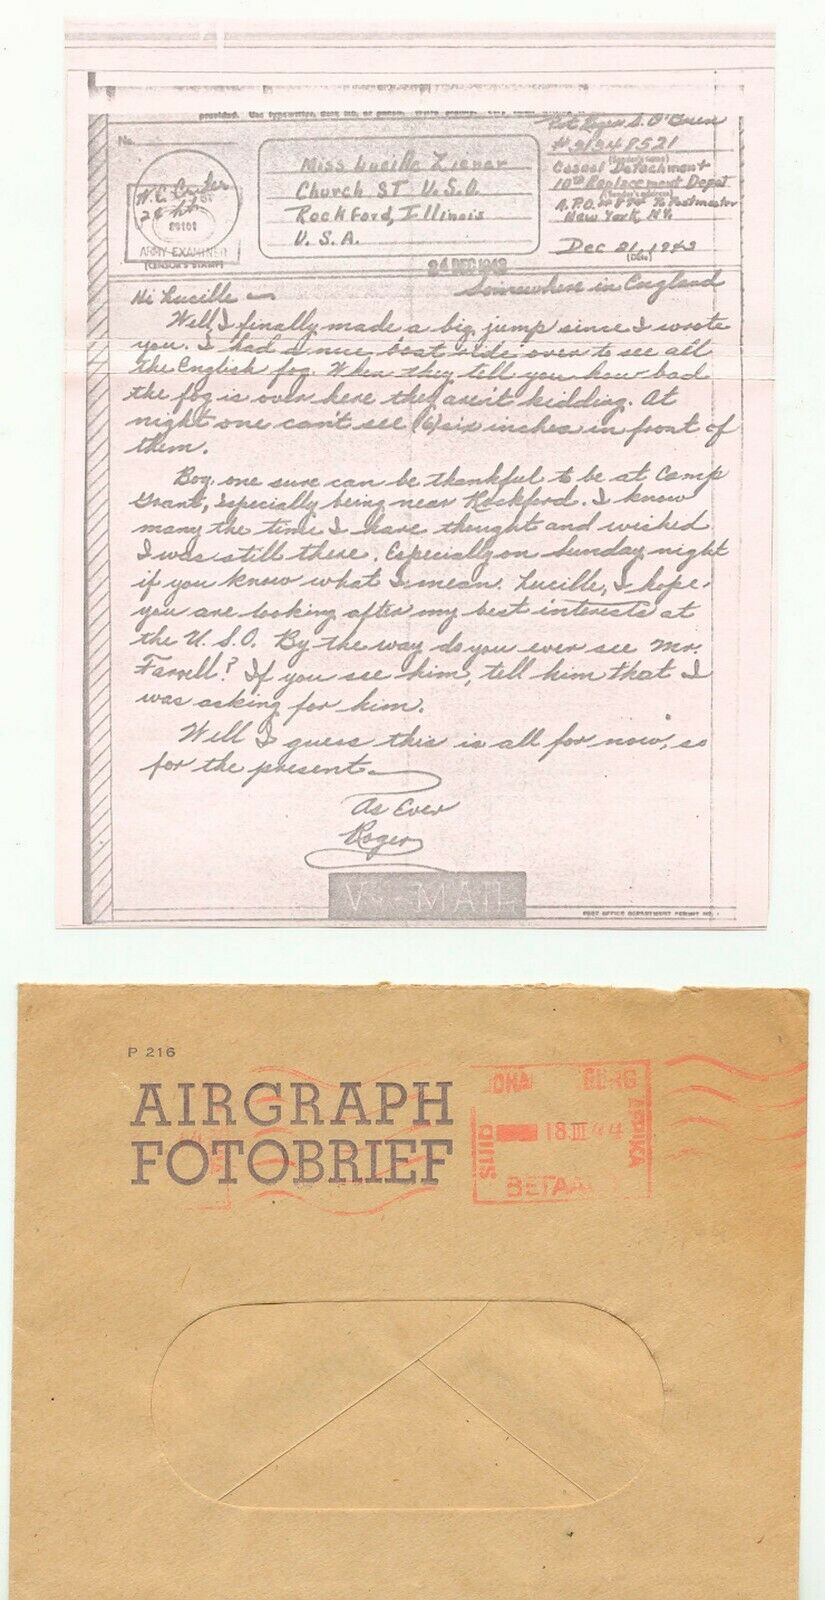 No.
Miss Lucille Ziener
Church ST U.S.O.
Rockford, Illinois
U. S. A.
Pvt. Roger S. O'Brien
Casual Detachment
10th Replacement Depot
A.P.O. # 874 % Postmaster
New York, N.Y.
Dec 21, 1943
(Date)
ARMY EXAMINER
(CENSOR'S STAMP)
24 DEC 1943
Somewhere in England
Hi Lucille —
Well, I finally made a big jump since I wrote
you. I had a nice boat ride over to see all
the English fog. When they tell you how bad
the fog is over here they aren't kidding. At
night one can't see (6) six inches in front of
them.
Boy one sure can be thankful to be at Camp
Grant, especially being near Rockford. I know
many the time I have thought and wished
I was still there. Especially on Sunday night
if you know what I mean. Lucille, I hope
you are looking after my best interests at
the U.S.O. By the way do you ever see Mr.
Farrell? If you see him, tell him that I
was asking for him.
Well I guess this is all for now, so
for the present —
As Ever
Roger
V--MAIL
POST OFFICE DEPARTMENT PERMIT NO. 1
P 216
AIRGRAPH
FOTOBRIEF
SUID
AFRIKA
18 III 44